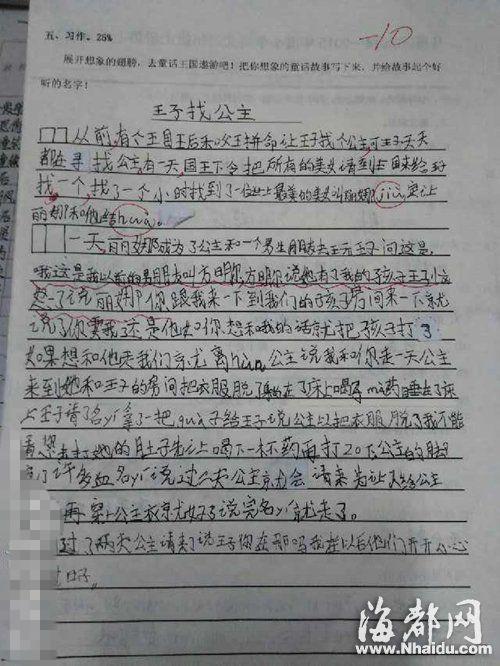 五、习作。26%
-10
展开想象的翅膀，去童话王国遨游吧！把你想象的童话故事写下来，并给故事起个好
听的名字！
王子找公主
从前,有个王国王后和国王拼命让王子找个公主可王子天天
都在寻找公主,有一天,国王下令把所有的美女请到
找一个,找了一个小时找到了一位世上最美的美女叫丽娜,jiu要让
丽娜和他结hun。
一天丽娜成为了公主和一个男生朋友去玩王子问这是,
哦这是我以前的男朋友叫方明,方明说她有了我的孩子王子
了说丽娜你跟我来一下到我们的孩子房间来一下
说了你要我还是他如你想和我的话就把孩子打了
如果想和他质我们就离hun公主说我和你走一天公主
来到她和王子的房间把衣服脱了躺在了床上喝了mi药睡在了床
上王子请名yi拿了一把gun子给王子说公主以把衣服脱了我不能
看去打她的肚子先让喝下一杯药再打20下公主的
了许多血名yi说过两天公主就会请来为让
再穿上公主衣就好了说完名yi就走了。
过了两天公主请来了说王子你在那吗我在以后他们开开心心
过日子。
海都网
www.Nhaidu.com